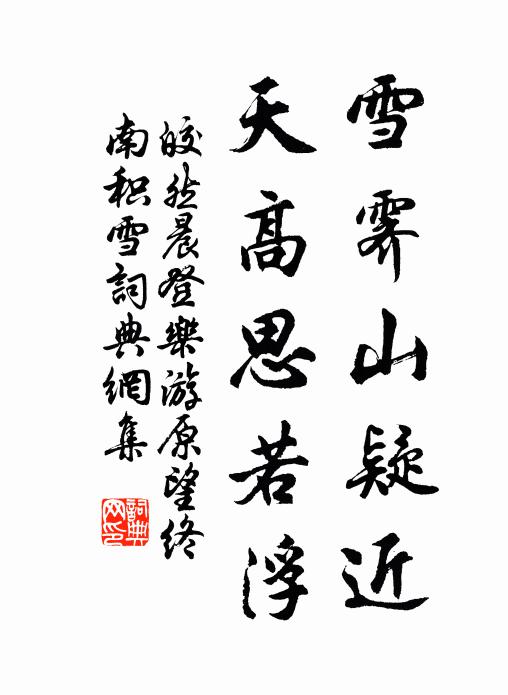 雪霽山疑近
天高思若浮
皎然晨登樂游原望終
南积雪詞典網集
詞典
网印